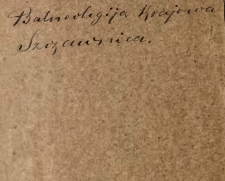 Balneologija Krajowa
Szczawnica.